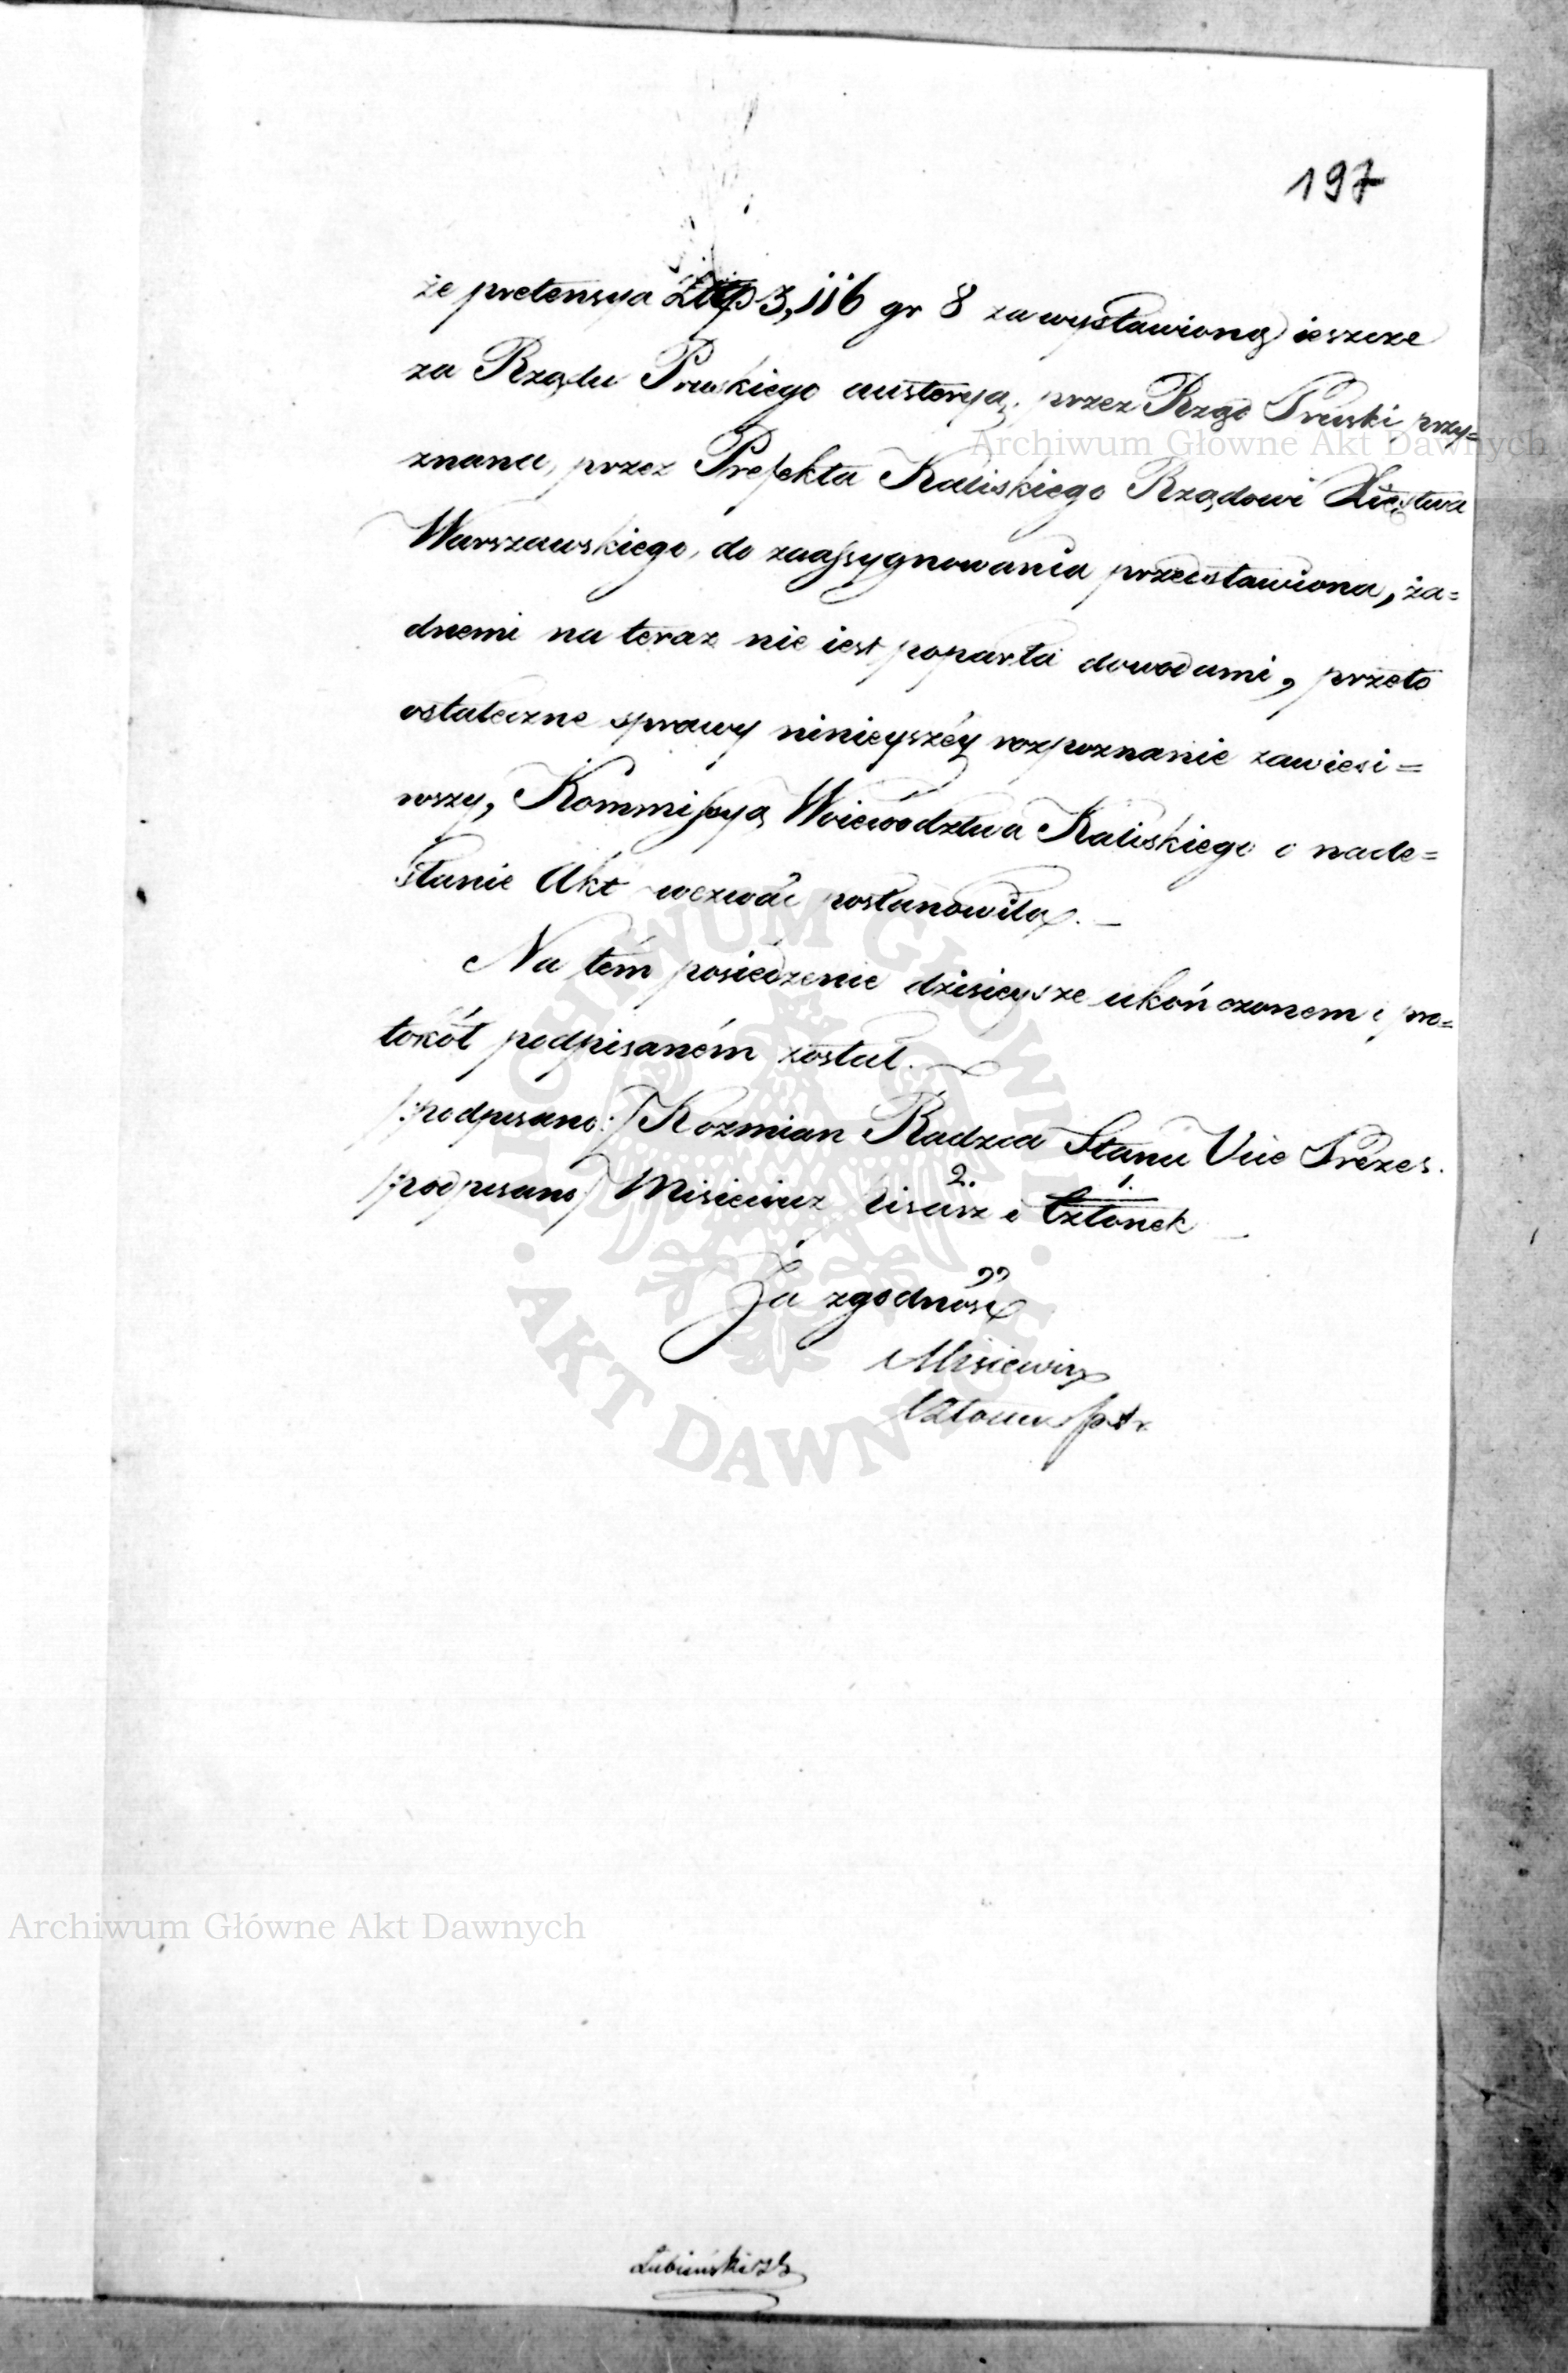 197
że pretensya Złtp 3,116 gr 8 za wystawioną ieszcze
za Rządu Pruskiego austeryą, przez Rząd Pruski przy=
znana, przez Prefekta Kaliskiego Rządowi Xięstwa
Warszawskiego, do zaassygnowania przedstawiona, ża=
dnemi na teraz nie iest poparta dowodami, przeto
ostateczne sprawy ninieyszéy rozpoznanie zawiesi=
wszy, Kommissyą Woiewództwa Kaliskiego o nade=
słanie Akt wezwać postanowiła. —
Na tém posiedzenie dzisieysze ukończonem i pro=
tokół podpisaném został. —
/:podpisano:/ Kozmian Radzca Stanu Vice Prezes.
2. 1.
/podpisano/ Misiewicz Pisarz i Członek —
Za zgodność
Misiewicz
Członek
Archiwum Główne Akt Dawnych
ARCHIWUM GŁÓWNE
· AKT DAWNYCH ·
Archiwum Główne Akt Dawnych